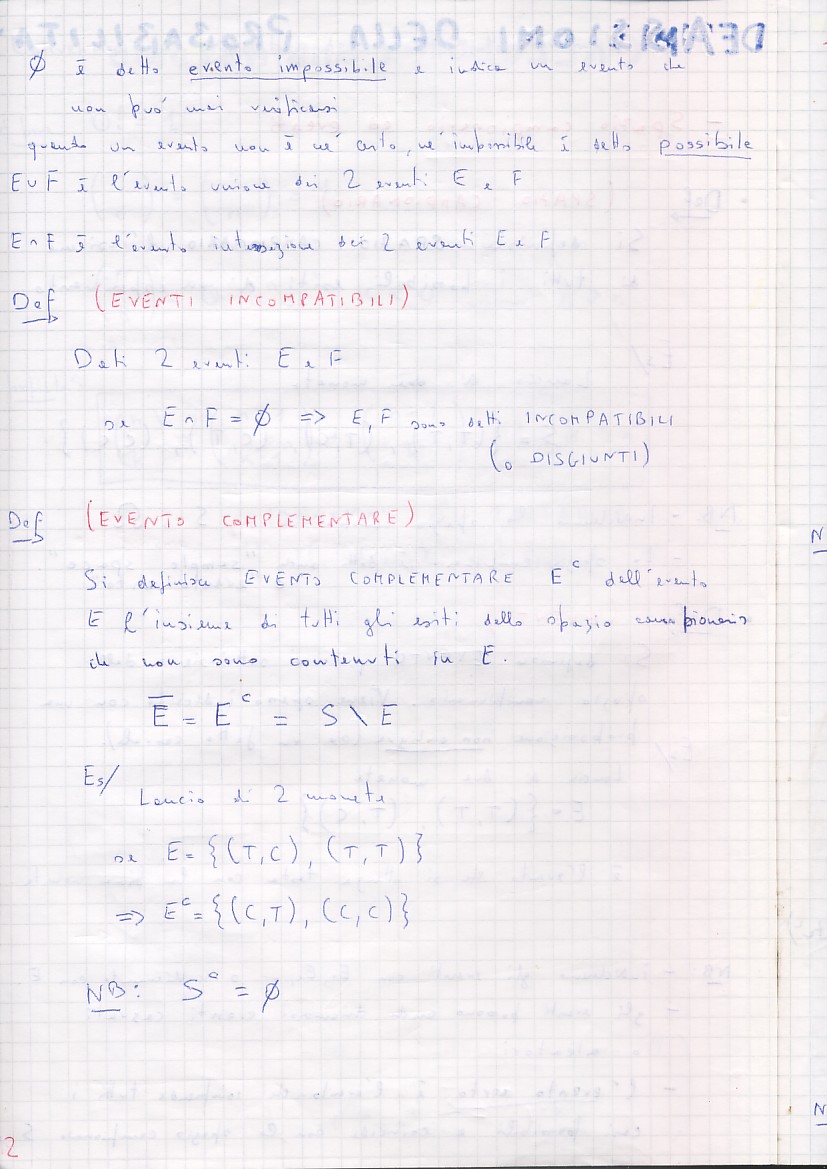 ∅ è detto evento impossibile e indica un evento che
non può mai verificarsi
quando un evento non è né certo, né impossibile è detto possibile
E∪F è l'evento unione dei 2 eventi E e F
E∩F è l'evento intersezione dei 2 eventi E e F
Def (EVENTI INCOMPATIBILI)
Dati 2 eventi E e F
se E∩F = ∅ => E, F sono detti INCOMPATIBILI
(o DISGIUNTI)
Def (EVENTO COMPLEMENTARE)
Si definisce EVENTO COMPLEMENTARE E^c dell'evento
E l'insieme di tutti gli esiti dello spazio campionario
che non sono contenuti in E.
E̅ = E^c = S \ E
Es/
Lancio di 2 monete
se E = {(T,C), (T,T)}
=> E^c = {(C,T), (C,C)}
NB: S^c = ∅
2
N
N